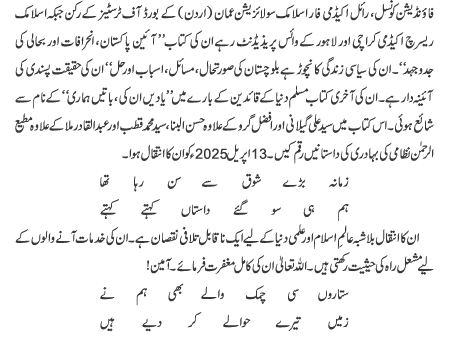 فاؤنڈیشن کونسل، رائل اکیڈمی فار اسلامک سولائزیشن عمان (اردن) کے بورڈ آف ٹرسٹیز کے رکن جبکہ اسلامک
ریسرچ اکیڈمی کراچی اور لاہور کے وائس پریذیڈنٹ رہے ان کی کتاب ’’آئین پاکستان، انحرافات اور بحالی کی
جدوجہد‘‘۔ ان کی سیاسی زندگی کا نچوڑ ہے بلوچستان کی صورتحال، مسائل، اسباب اور حل‘‘ ان کی حقیقت پسندی کی
آئینہ دار ہے۔ ان کی آخری کتاب مسلم دنیا کے قائدین کے بارے میں ’’یادیں ان کی، باتیں ہماری‘‘ کے نام سے
شائع ہوئی۔ اس کتاب میں سید علی گیلانی اور افضل گرو کے علاوہ حسن البنا، سید محمد قطب اور عبدالقادر ملا کے علاوہ مطیع
الرحمٰن نظامی کی بہادری کی داستانیں رقم کیں۔ 13 اپریل 2025ء کو ان کا انتقال ہوا۔
زمانہ بڑے شوق سے سن رہا تھا
ہم ہی سو گئے داستاں کہتے کہتے
ان کا انتقال بلاشبہ عالم اسلام اور علمی دنیا کے لیے ایک ناقابل تلافی نقصان ہے۔ ان کی خدمات آنے والوں کے
لیے مشعل راہ کی حیثیت رکھتی ہیں۔ اللہ تعالیٰ ان کی کامل مغفرت فرمائے۔ آمین!
ستاروں سی چمک والے بھی ہم نے
زمیں تیرے حوالے کر دیے ہیں